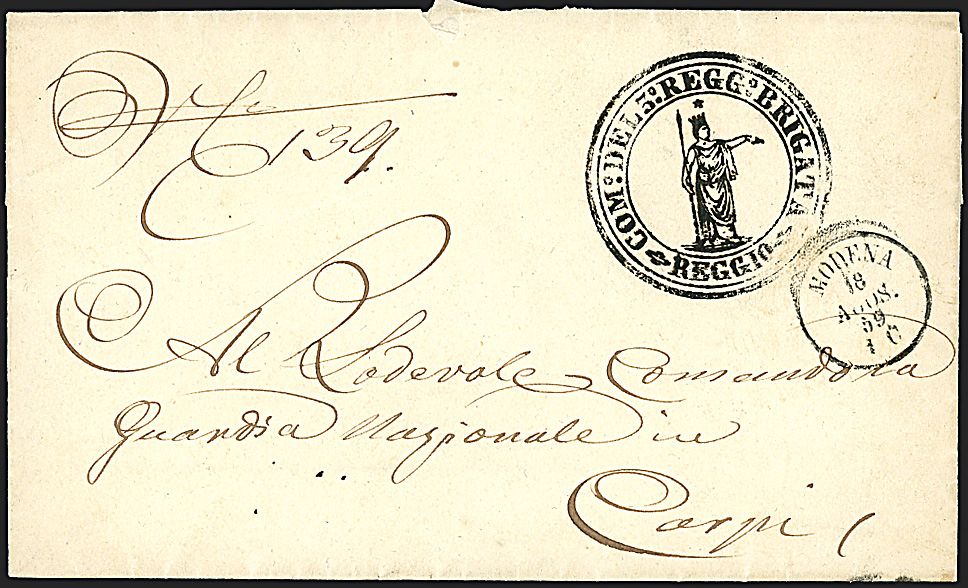 N.
139.
COM.º DEL 5.º REGG.º BRIGATA
REGGIO
MODENA
18
AGOS.
59
1 C
Al Lodevole Comando la
Guardia Nazionale in
Carpi